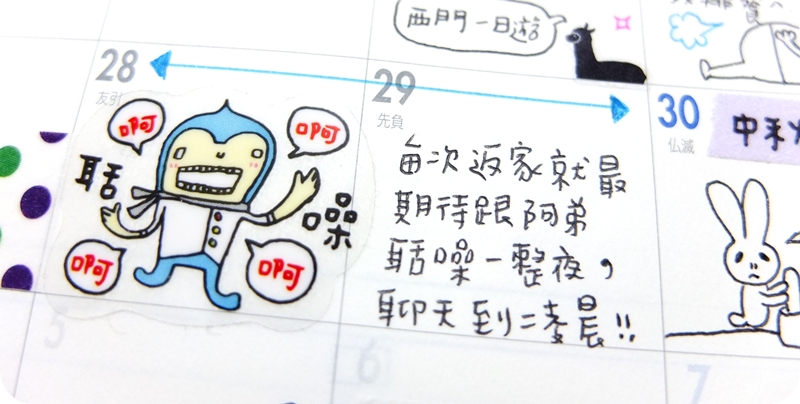 西門一日遊
28
友引
29
先負
30
仏滅
中秋
啊
啊
聒
噪
啊
啊
每次返家就最
期待跟阿弟
聒噪一整夜，
聊天到凌晨!!
5
6
7